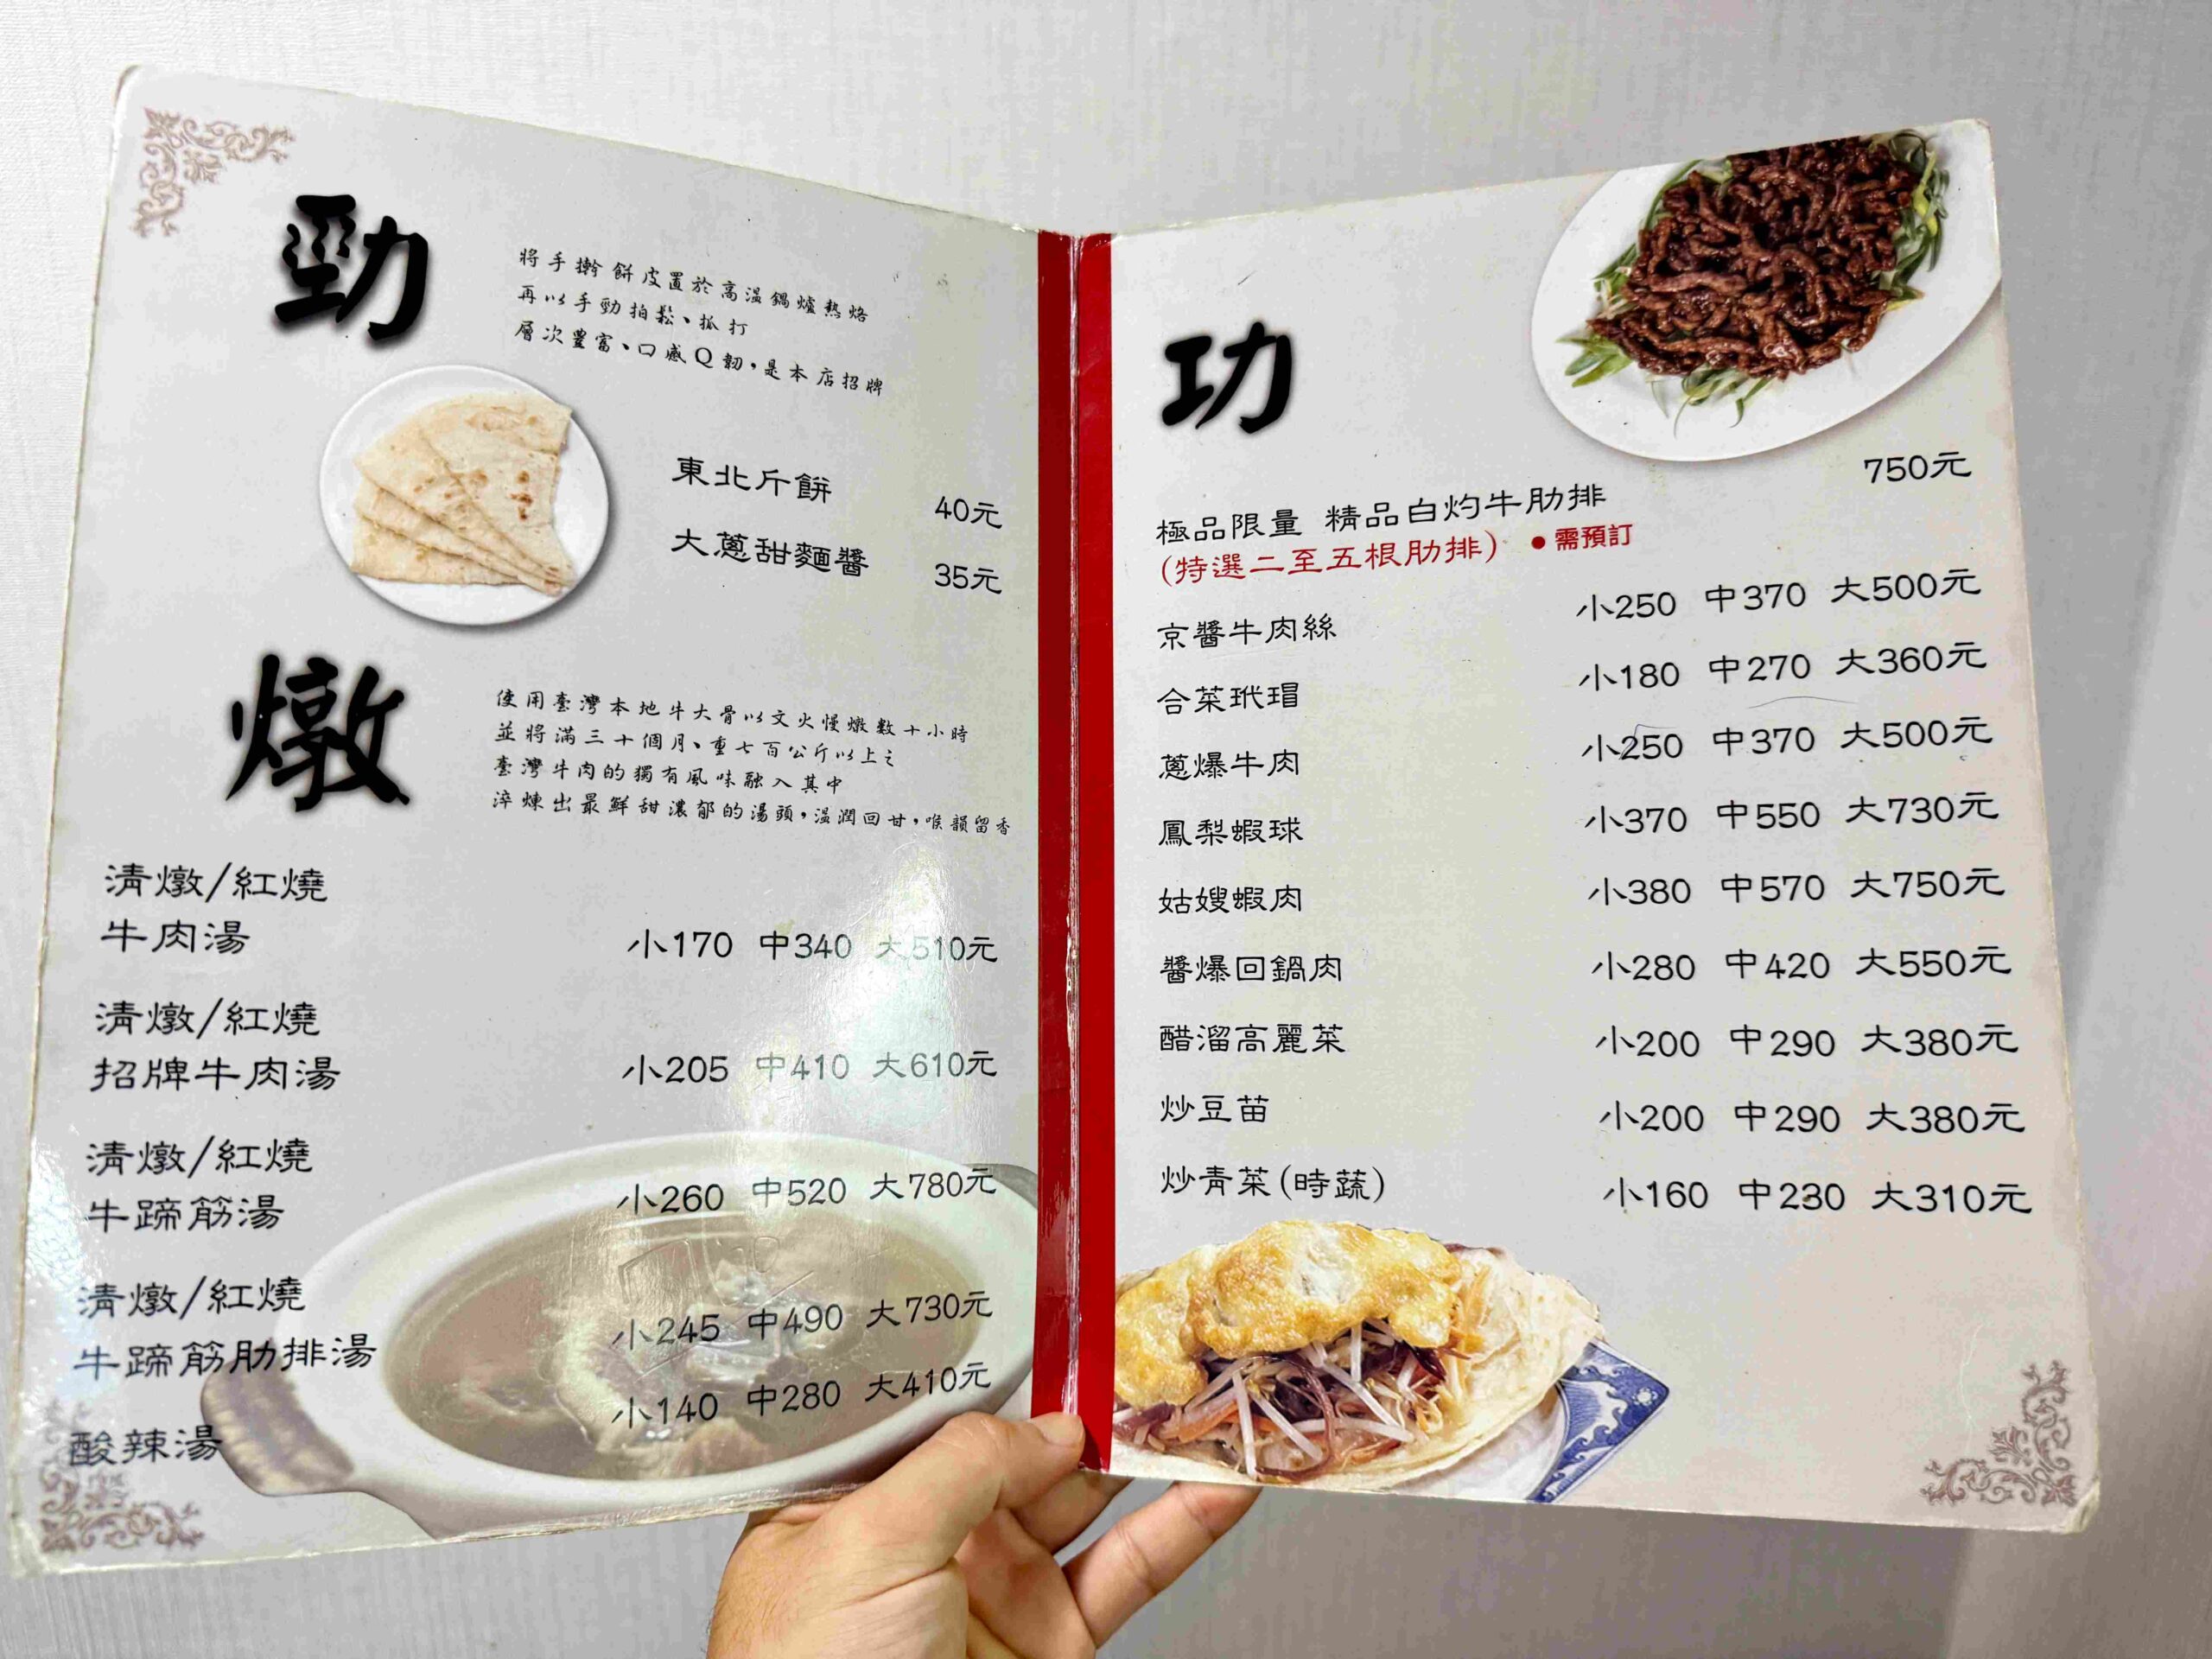 勁
將手擀餅皮置於高溫鍋爐熱烙
再以手勁拍鬆、抓打
層次豐富、口感Q韌，是本店招牌
東北斤餅 40元
大蔥甜麵醬 35元
燉
使用臺灣本地牛大骨以文火慢燉數十小時
並將滿三十個月、重七百公斤以上之
臺灣牛肉的獨有風味融入其中
淬煉出最鮮甜濃郁的湯頭，溫潤回甘，喉韻留香
清燉/紅燒
牛肉湯 小170 中340 大510元
清燉/紅燒
招牌牛肉湯 小205 中410 大610元
清燉/紅燒
牛蹄筋湯 小260 中520 大780元
清燉/紅燒
牛蹄筋肋排湯 小245 中490 大730元
酸辣湯 小140 中280 大410元
功
極品限量 精品白灼牛肋排 750元
(特選二至五根肋排) ●需預訂
京醬牛肉絲 小250 中370 大500元
合菜玳瑁 小180 中270 大360元
蔥爆牛肉 小250 中370 大500元
鳳梨蝦球 小370 中550 大730元
姑嫂蝦肉 小380 中570 大750元
醬爆回鍋肉 小280 中420 大550元
醋溜高麗菜 小200 中290 大380元
炒豆苗 小200 中290 大380元
炒青菜(時蔬) 小160 中230 大310元